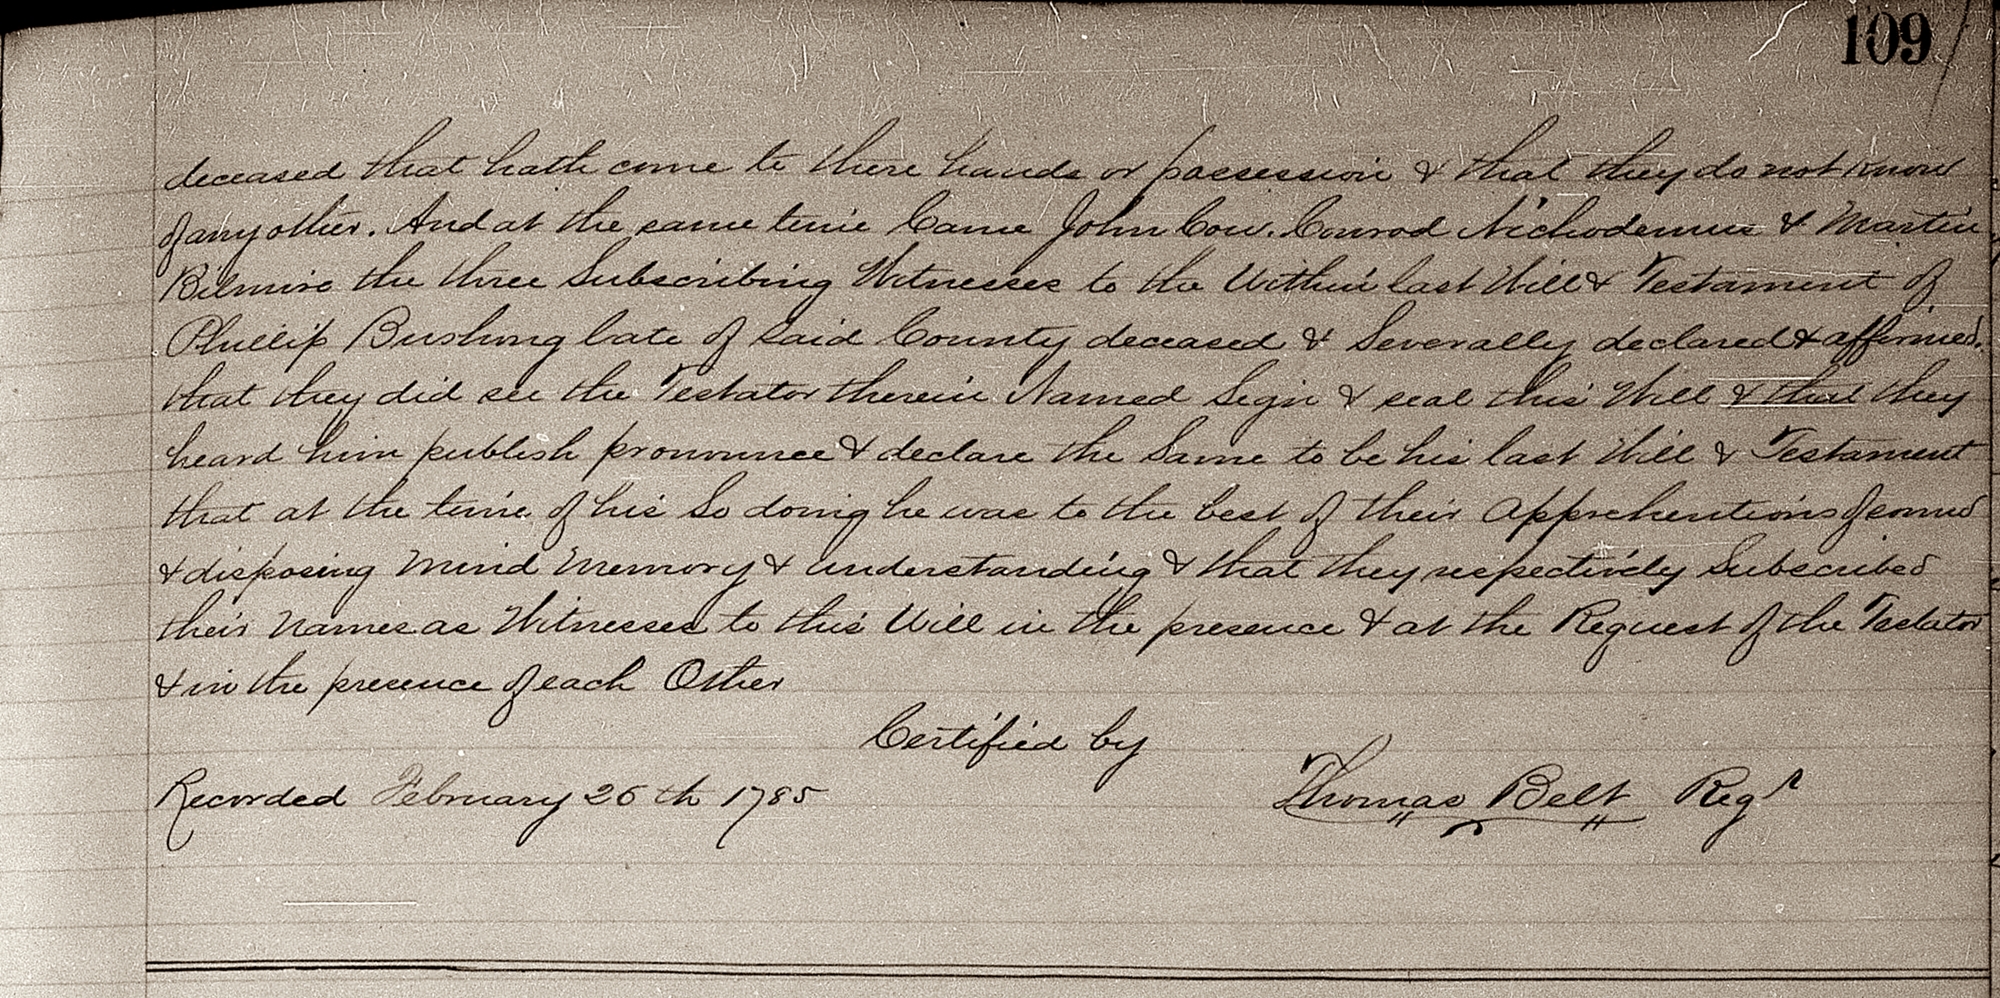 109
deceased that hath come to there hands or possession & that they do not know
of any other. And at the same time Came John Cow. Conrad Nichodemus & Martin
Bilmire the three Subscribing Witnesses to the Within last Will & Testament of
Phillip Bushong late of said County deceased & Severally declared & affirmed.
that they did see the Testator therein Named Sign & seal this Will & that they
heard him publish pronounce & declare the Same to be his last Will & Testament
that at the time of his So doing he was to the best of their Apprehentions of sound
& disposing Mind Memory & Understanding & that they respectively Subscribed
their Names as Witnesses to this Will in the presence & at the Request of the Testator
& in the presence of each Other
Certified by
Recorded February 26th 1785 Thomas Belt Regr